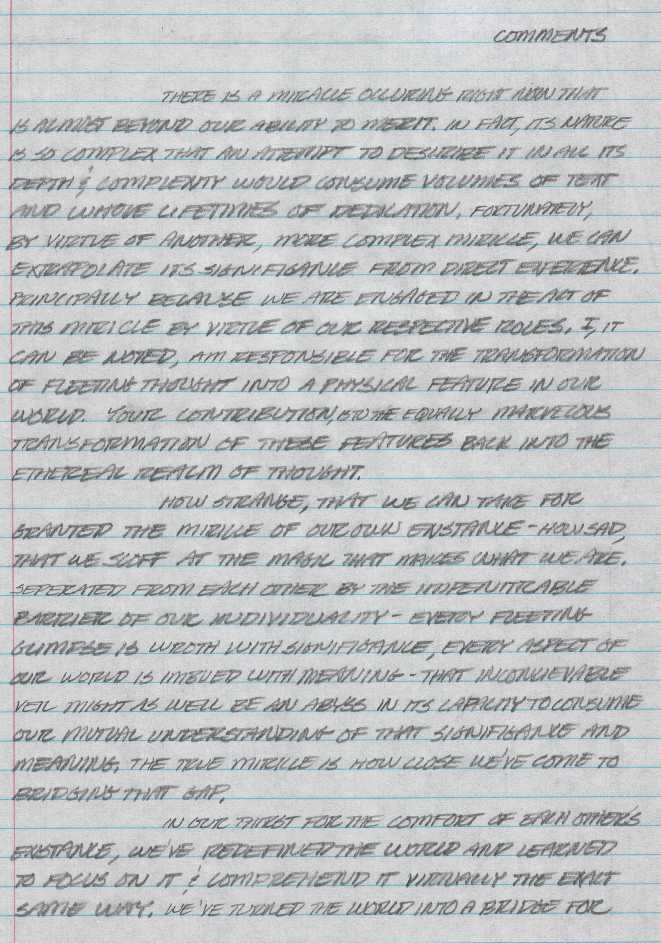 COMMENTS
THERE IS A MIRACLE OCCURING RIGHT NOW THAT
IS ALMOST BEYOND OUR ABILITY TO MERIT. IN FACT, ITS NATURE
IS SO COMPLEX THAT AN ATTEMPT TO DESCRIBE IT IN ALL ITS
DEPTH & COMPLEXITY WOULD CONSUME VOLUMES OF TEXT
AND WHOLE LIFETIMES OF DEDICATION. FORTUNATELY,
BY VIRTUE OF ANOTHER, MORE COMPLEX MIRICLE, WE CAN
EXTRAPOLATE ITS SIGNIFIGANCE FROM DIRECT EXPERIENCE.
PRINCIPALLY BECAUSE WE ARE ENGAGED IN THE ACT OF
THIS MIRICLE BY VIRTUE OF OUR RESPECTIVE ROLES. I, IT
CAN BE NOTED, AM RESPONSIBLE FOR THE TRANSFORMATION
OF FLEETING THOUGHT INTO A PHYSICAL FEATURE IN OUR
WORLD. YOUR CONTRIBUTION, IS TO THE EQUALLY MARVELOUS
TRANSFORMATION OF THESE FEATURES BACK INTO THE
ETHEREAL REALM OF THOUGHT.
HOW STRANGE, THAT WE CAN TAKE FOR
GRANTED THE MIRICLE OF OUR OWN EXISTANCE - HOW SAD,
THAT WE SCOFF AT THE MAGIC THAT MAKES WHAT WE ARE.
SEPERATED FROM EACH OTHER BY THE IMPENITRABLE
BARRIER OF OUR INDIVIDUALITY - EVERY FLEETING
GLIMPSE IS WROTH WITH SIGNIFIGANCE, EVERY ASPECT OF
OUR WORLD IS IMBUED WITH MEANING - THAT INCONCIEVABLE
VEIL MIGHT AS WELL BE AN ABYSS IN ITS CAPACITY TO CONSUME
OUR MUTUAL UNDERSTANDING OF THAT SIGNIFIGANCE AND
MEANING. THE TRUE MIRICLE IS HOW CLOSE WE'VE COME TO
BRIDGING THAT GAP.
IN OUR THIRST FOR THE COMFORT OF EACH OTHER'S
EXISTANCE, WE'VE REDEFINED THE WORLD AND LEARNED
TO FOCUS ON IT & COMPREHEND IT VIRTUALLY THE EXACT
SAME WAY. WE'VE TURNED THE WORLD INTO A BRIDGE FOR